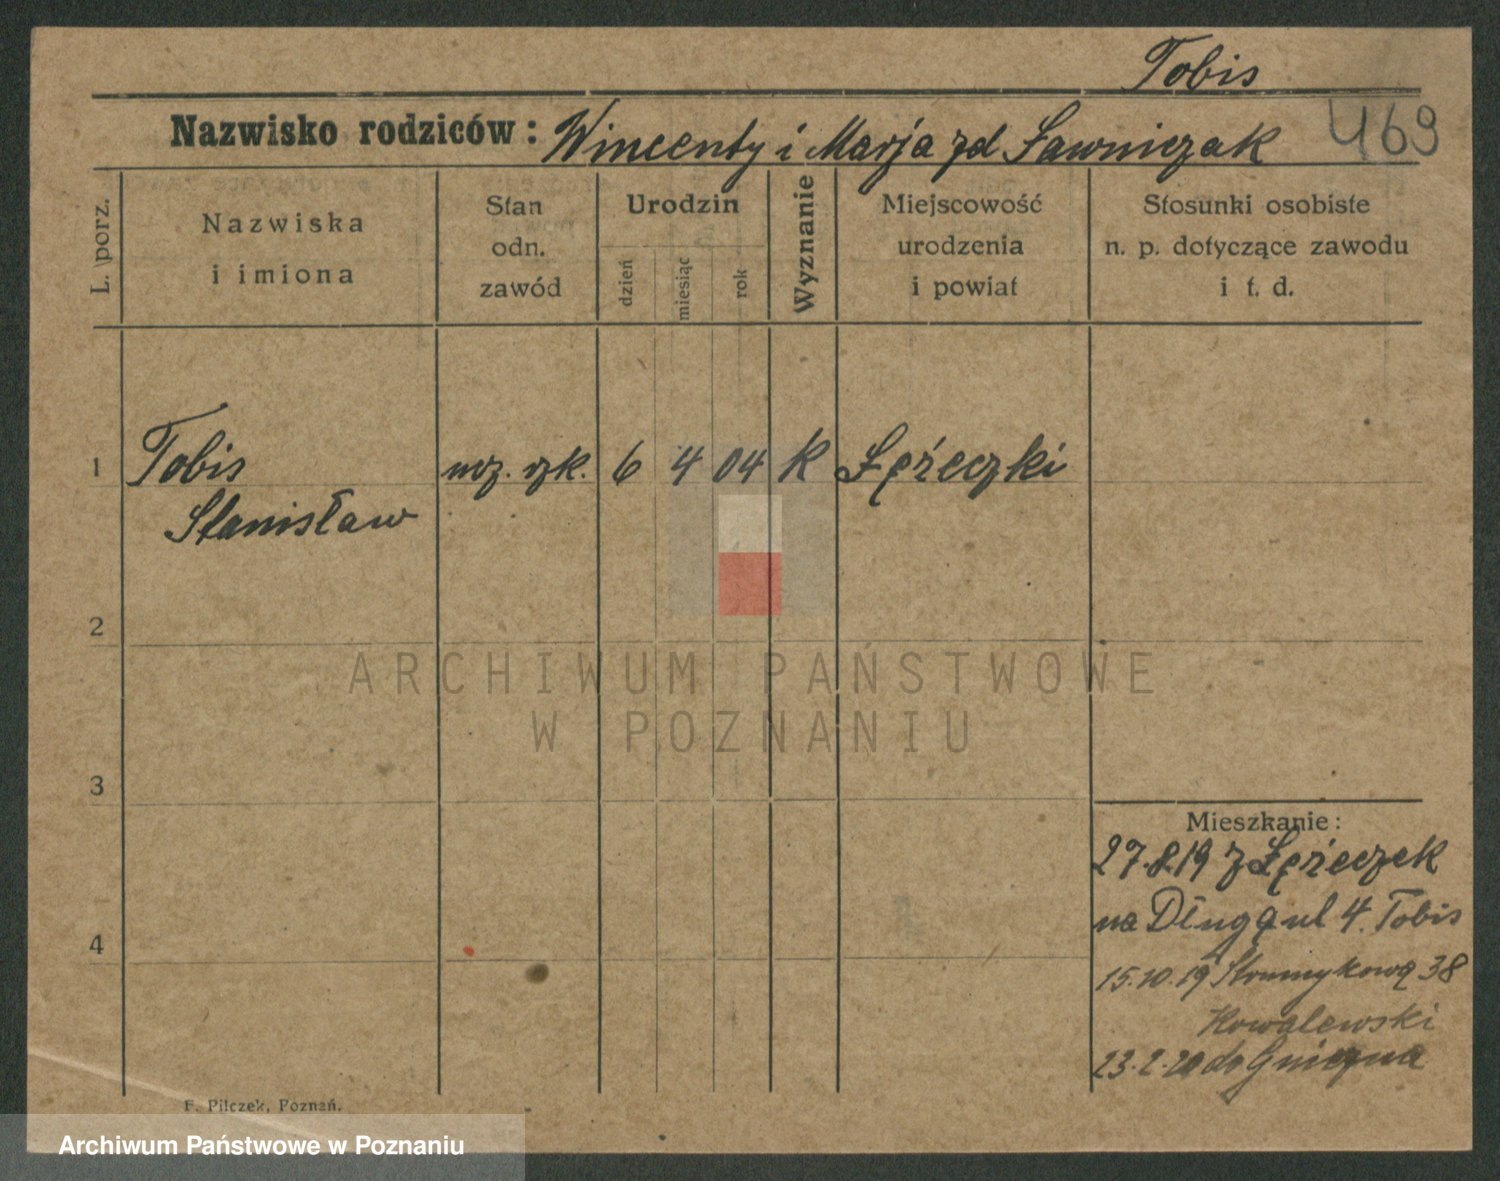 Tobis
Nazwisko rodziców: Wincenty i Marja zd Ławniczak 469
L. porz.
Nazwiska
i imiona
Stan
odn.
zawód
Urodzin
dzień
miesiąc
rok
Wyznanie
Miejscowość
urodzenia
i powiat
Stosunki osobiste
n. p. dotyczące zawodu
i t. d.
1 Tobis ucz. szk. 6 4 04 K Łężeczki
Stanisław
2
ARCHIWUM PAŃSTWOWE
W POZNANIU
3
Mieszkanie:
27.8.19 z Łężeczek
na Długą ul 4. Tobis
4
15.10.19 Strumykową 38
Kowalewski
23.2.20 do Gniezna
F. Pilczek, Poznań.
Archiwum Państwowe w Poznaniu